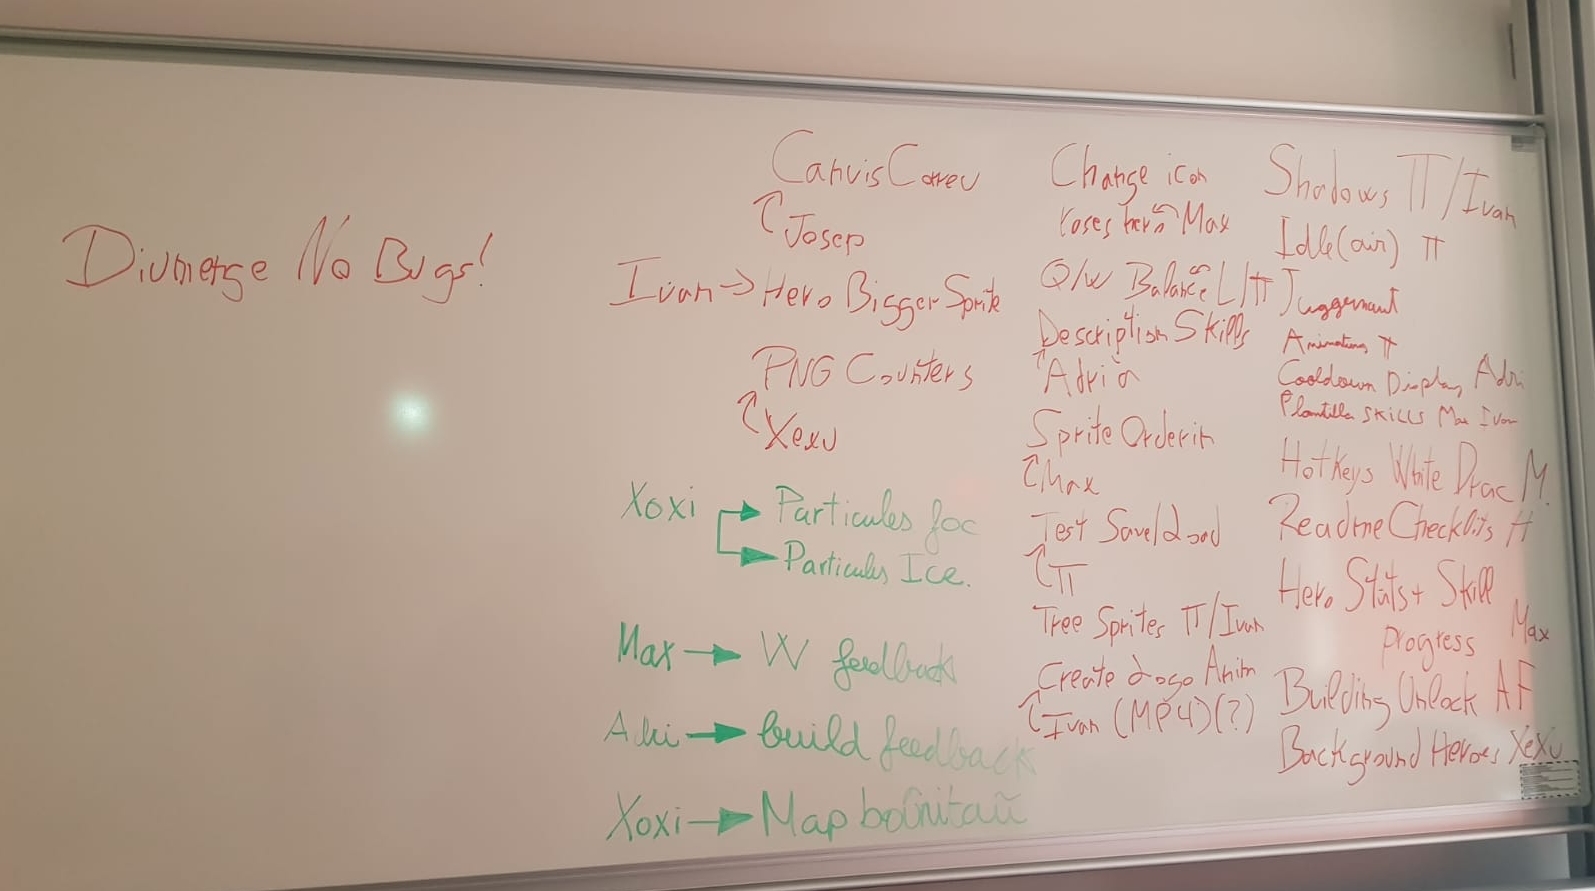 Diumenge No Bugs!
Canvis Correu
Josep
Ivan → Hero Bigger Sprite
PNG Counters
Xexu
Xoxi → Particules foc
→ Particules Ice.
Max → W feedback
Adri → build feedback
Xoxi → Map
Change icon
Poses hero Max
Q/W Balance L/π
Description Skills
Adrià
Sprite Orderin
Max
Test Save/Load
π
Tree Sprites π/Ivan
Create Logo Anim
Ivan (MP4)(?)
Shadows π/Ivan
Idle(air) π
Juggernaut
Animations π
Cooldown Display Adri
Plantilla SKILLS Max Ivan
HotKeys White Drac M.
Readme Checklists
Hero Stats + Skill
progress Max
Building Unlock AF
Background Heroes Xexu